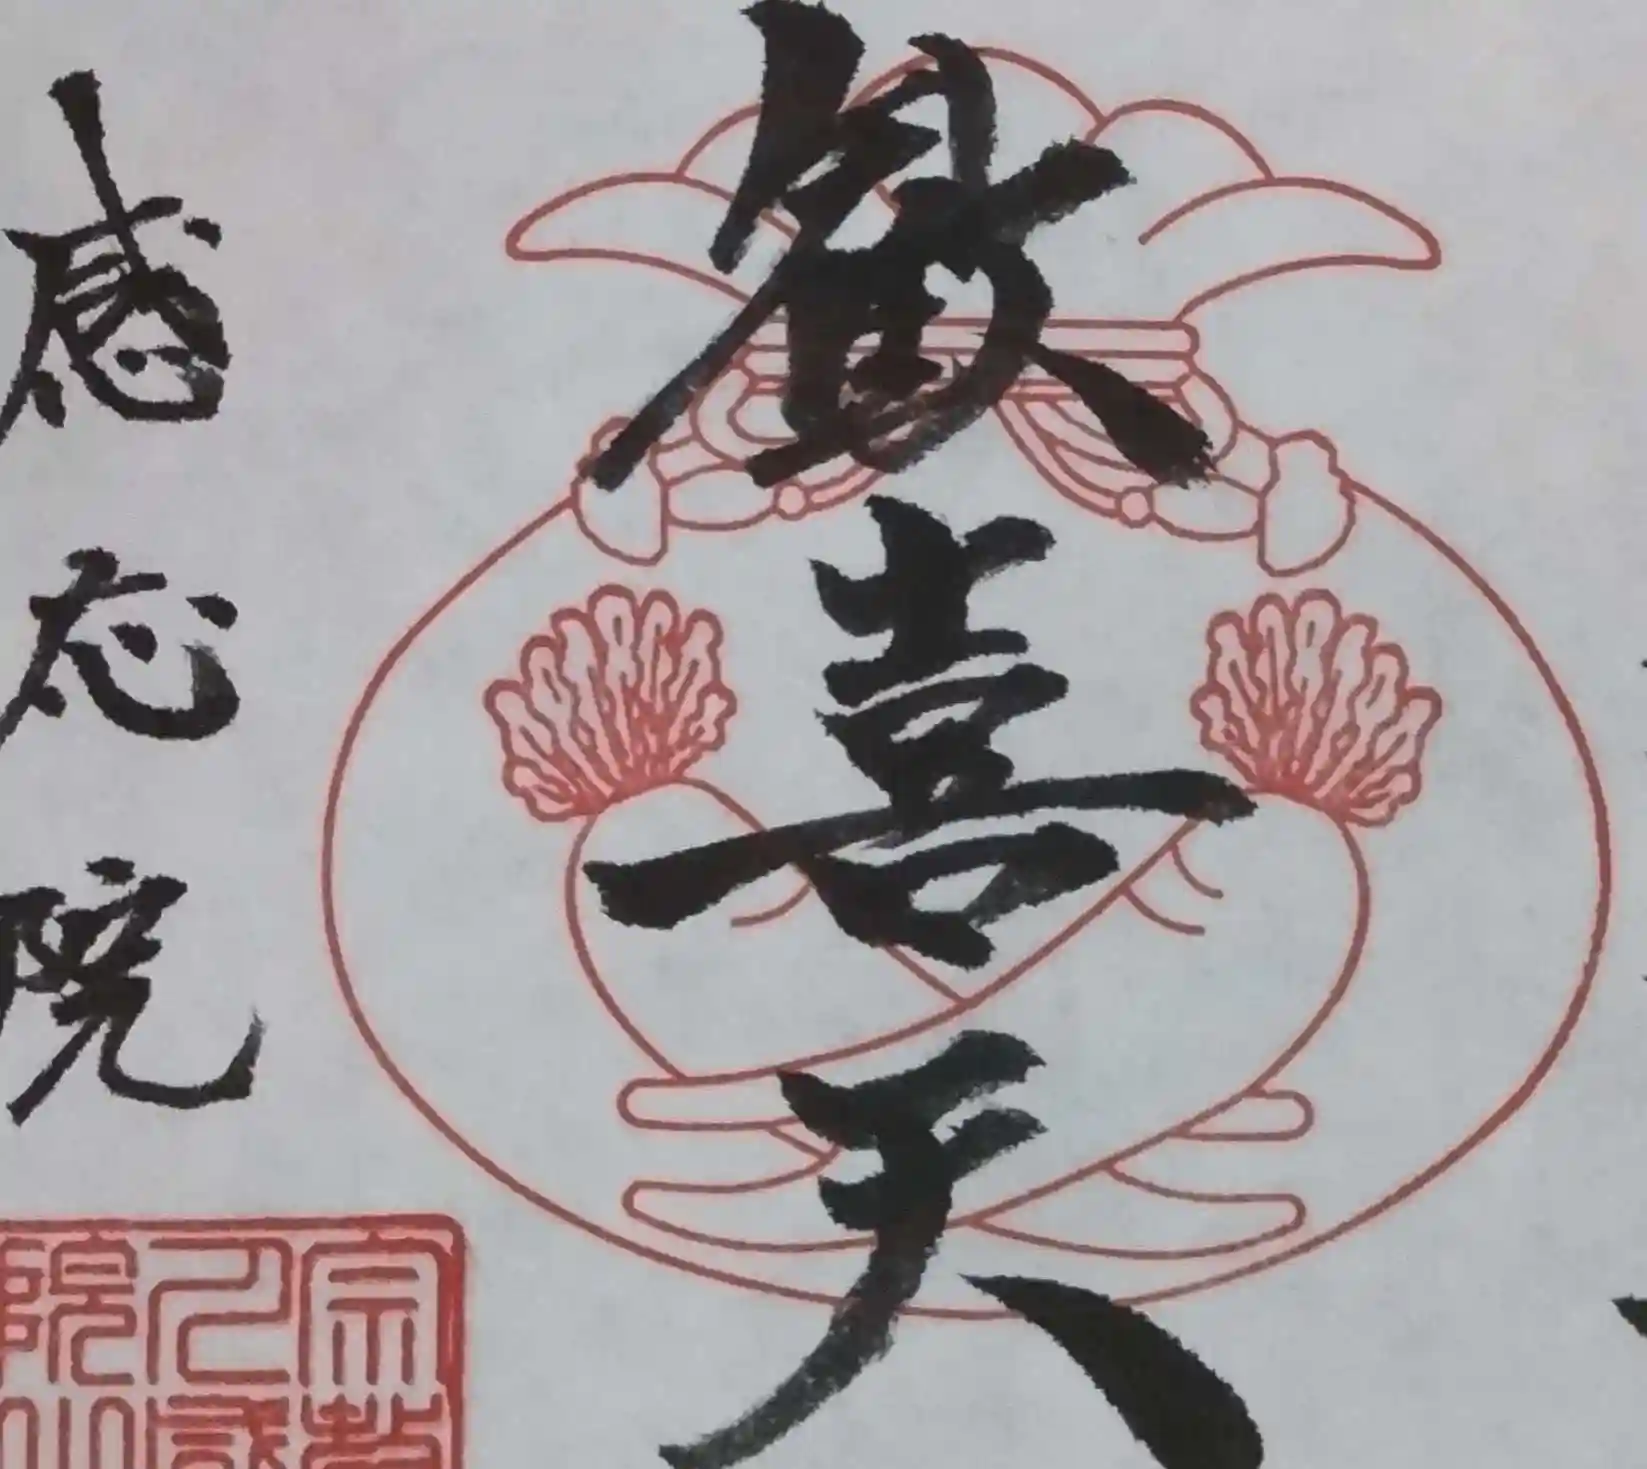 歓喜天
感応院